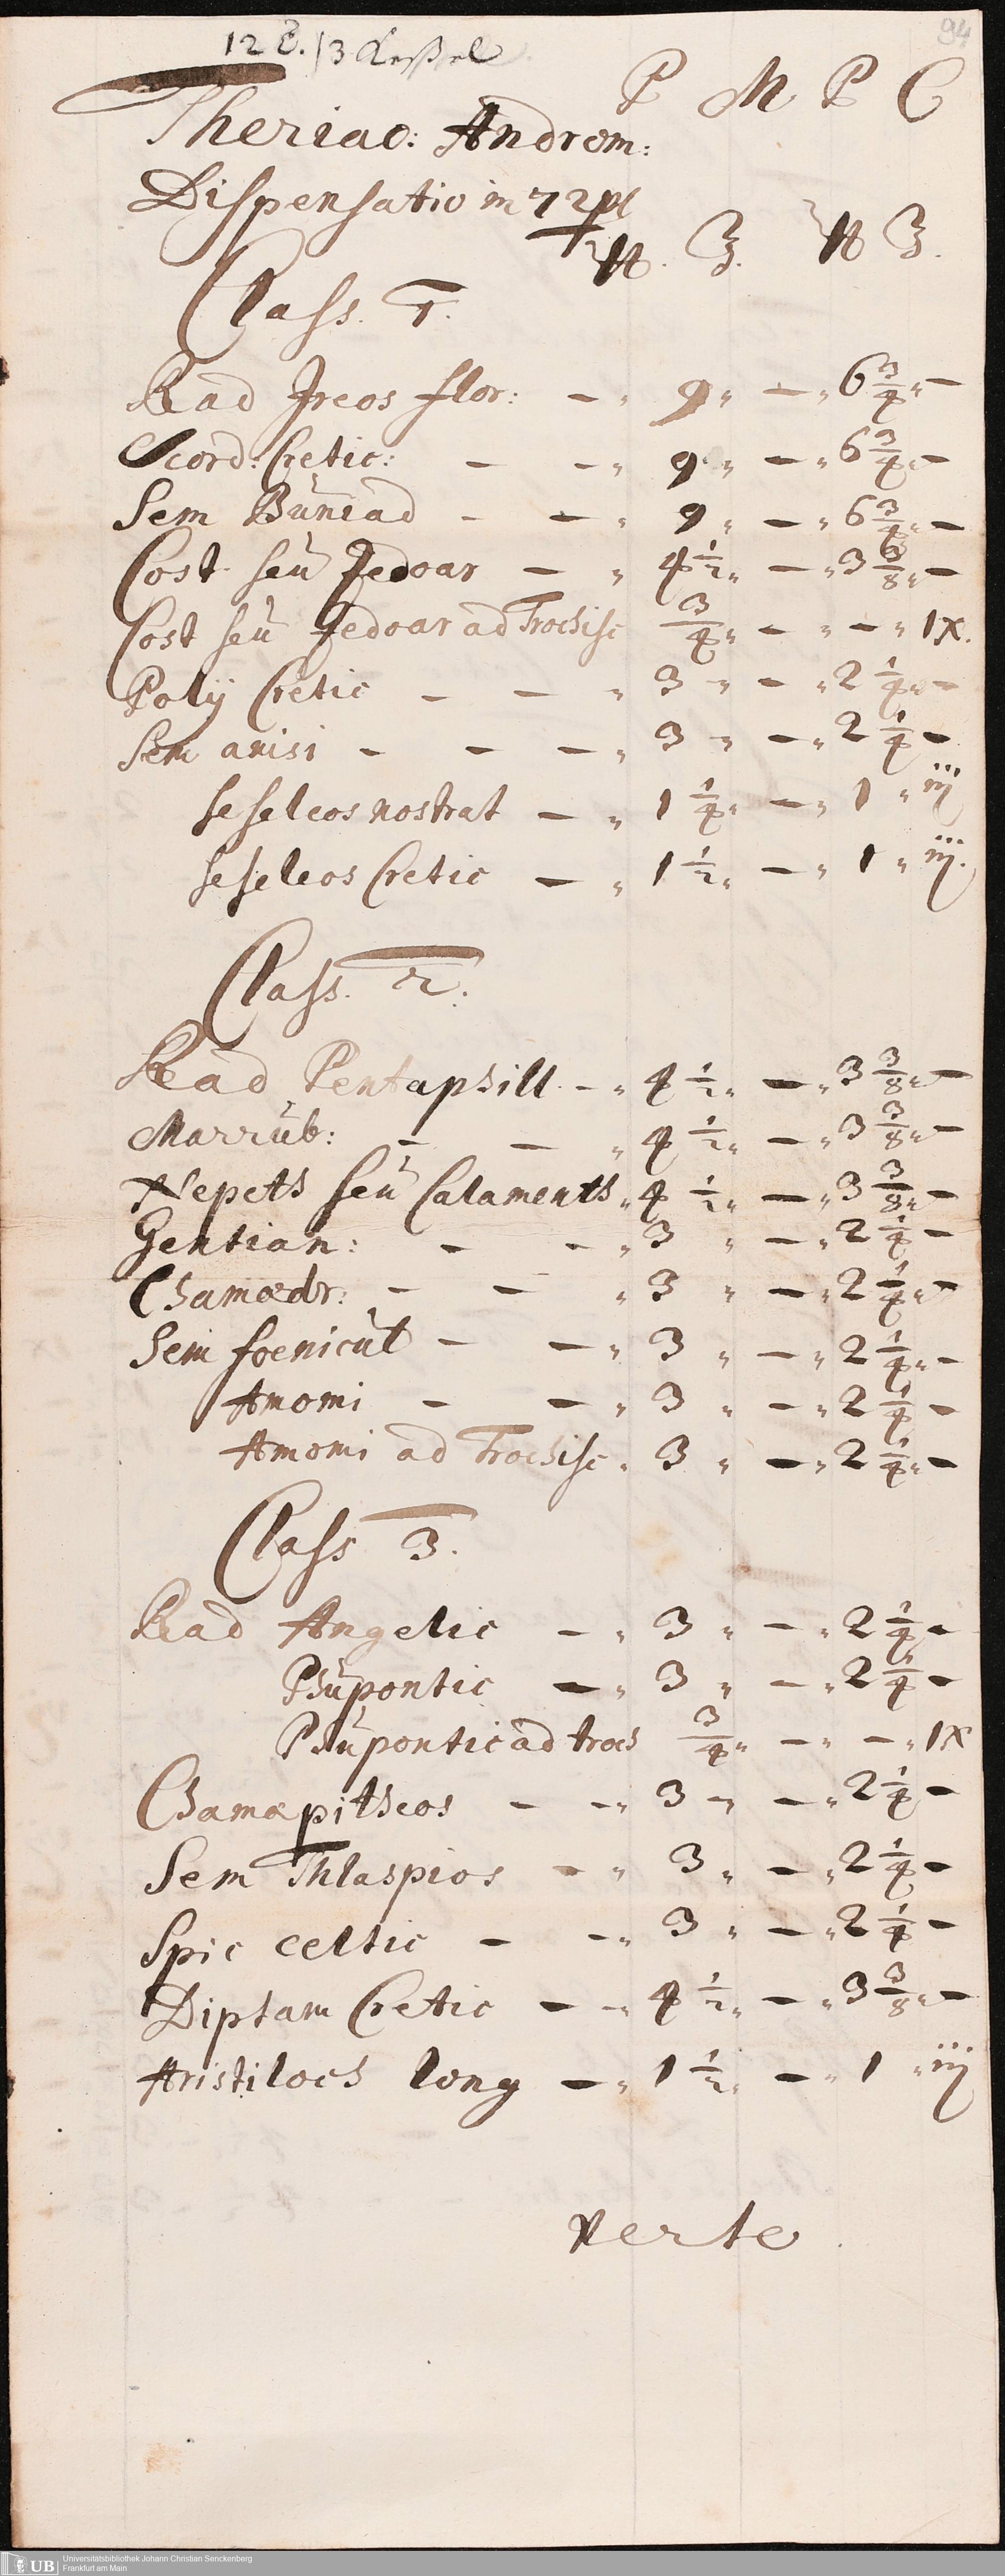 94
12 ℔. /3 Keßel
P M P C
Theriac: Androm:
Dispensatio in 72 pl
℔. ℥. ℔ ℥.
Class. 1.
Rad Jreos flor: — „ 9 „ — „ 6 3/4 „ —
Scord: Cretic: — — „ 9 „ — „ 6 3/4 „ —
Sem Buniad — — „ 9 „ — „ 6 3/4 „ —
Cost seu Zedoar — „ 4 1/2 „ — „ 3 3/8 „ —
Cost seu Zedoar ad Trochisc 3/4 „ — „ — „ 1X.
Polij Cretic — — „ 3 „ — „ 2 1/4 „ —
Sem anisi — — — „ 3 „ — „ 2 1/4 —
seseleos nostrat — „ 1 1/4 „ — „ 1 „ iij
seseleos Cretic — „ 1 1/2 „ — „ 1 „ iij.
Class. 2.
Rad Pentaphill — „ 4 1/2 „ — „ 3 3/8 „ —
Marrub: — — „ 4 1/2 „ — „ 3 3/8 „ —
Nepeth seu Calamenth „ 4 1/2 „ — „ 3 3/8 „ —
Gentian: — — „ 3 „ — „ 2 1/4 —
Chamædr: — — „ 3 „ — „ 2 1/4 „ —
Sem foenicul — — „ 3 „ — „ 2 1/4 „ —
Amomi — — „ 3 „ — „ 2 1/4 —
Amomi ad Trochisc „ 3 „ — „ 2 1/4 „ —
Class 3.
Rad Angelic — „ 3 „ — „ 2 1/4 —
Rhupontic — „ 3 „ — „ 2 1/4 —
Rhupontic ad troch 3/4 „ — „ — „ 1X
Chamæpitheos — — „ 3 „ — „ 2 1/4 —
Sem Thlaspios — „ 3 „ — „ 2 1/4 —
Spic celtic — — „ 3 „ — „ 2 1/4 —
Diptam Cretic — — „ 4 1/2 „ — „ 3 3/8 „ —
Aristiloch long — „ 1 1/2 „ — „ 1 „ iij
verte
UB Universitätsbibliothek Johann Christian Senckenberg
Frankfurt am Main